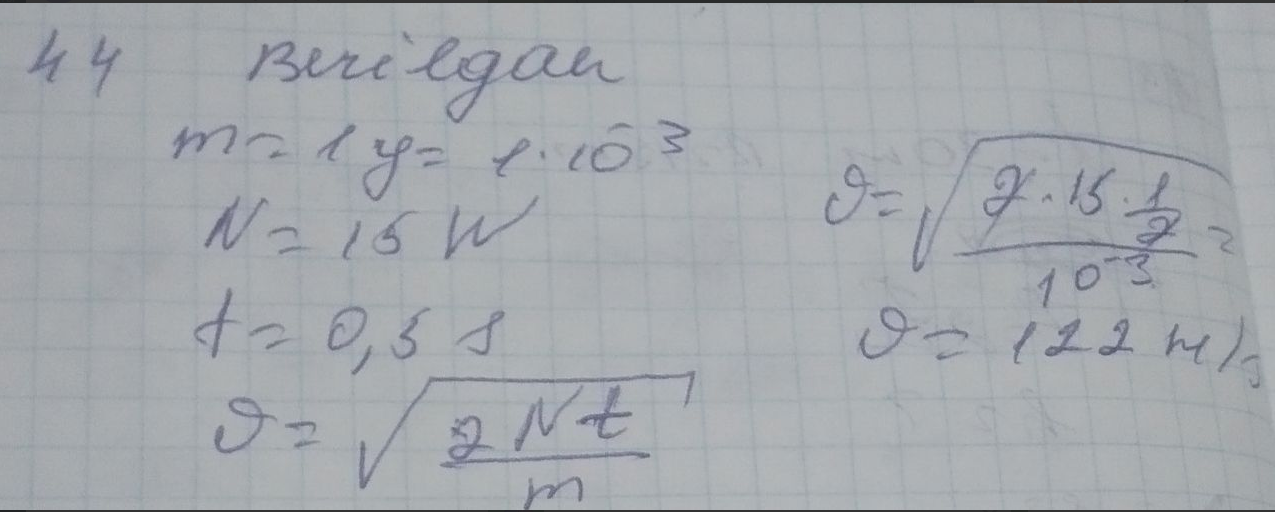 44 Berilgan
m = 1 g = 1·10⁻³
N = 15 W
t = 0,5 s
ϑ = √(2Nt/m)
ϑ = √(2·15·1/2 / 10⁻³) =
ϑ = 122 m/s